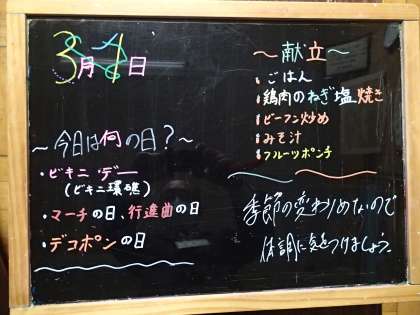 3月1日
～今日は何の日？～
・ビキニ・デー
（ビキニ環礁）
・マーチの日、行進曲の日
・デコポンの日
～献立～
ごはん
鶏肉のねぎ塩焼き
ビーフン炒め
みそ汁
フルーツポンチ
季節の変わりめなので
体調に気をつけましょう。